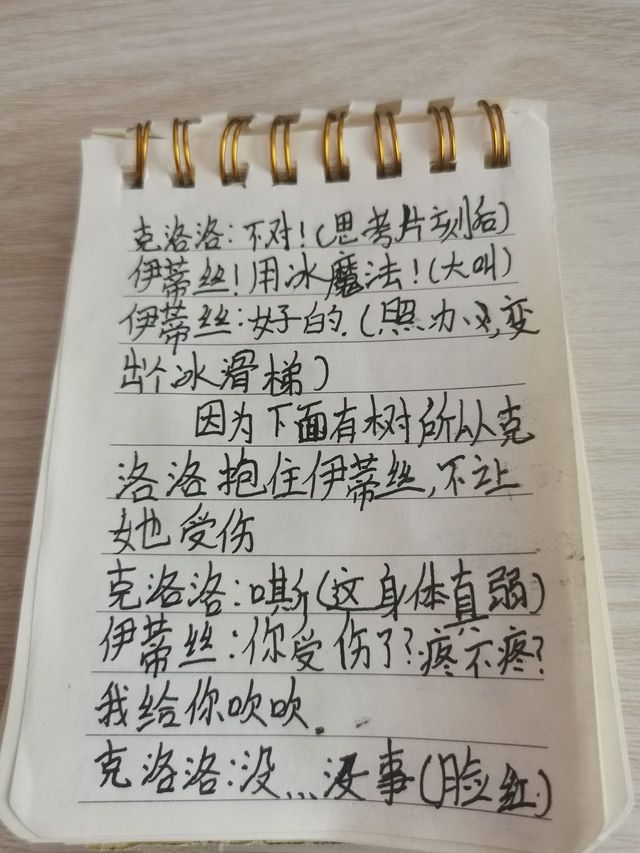 克洛洛：不对！(思考片刻后)
伊蒂丝！用冰魔法！(大叫)
伊蒂丝：好的.(照办,变
出个冰滑梯)
因为下面有树所以克
洛洛抱住伊蒂丝,不让
她受伤
克洛洛：嘶(这身体真弱)
伊蒂丝：你受伤了？疼不疼？
我给你吹吹.
克洛洛：没...没事(脸红)